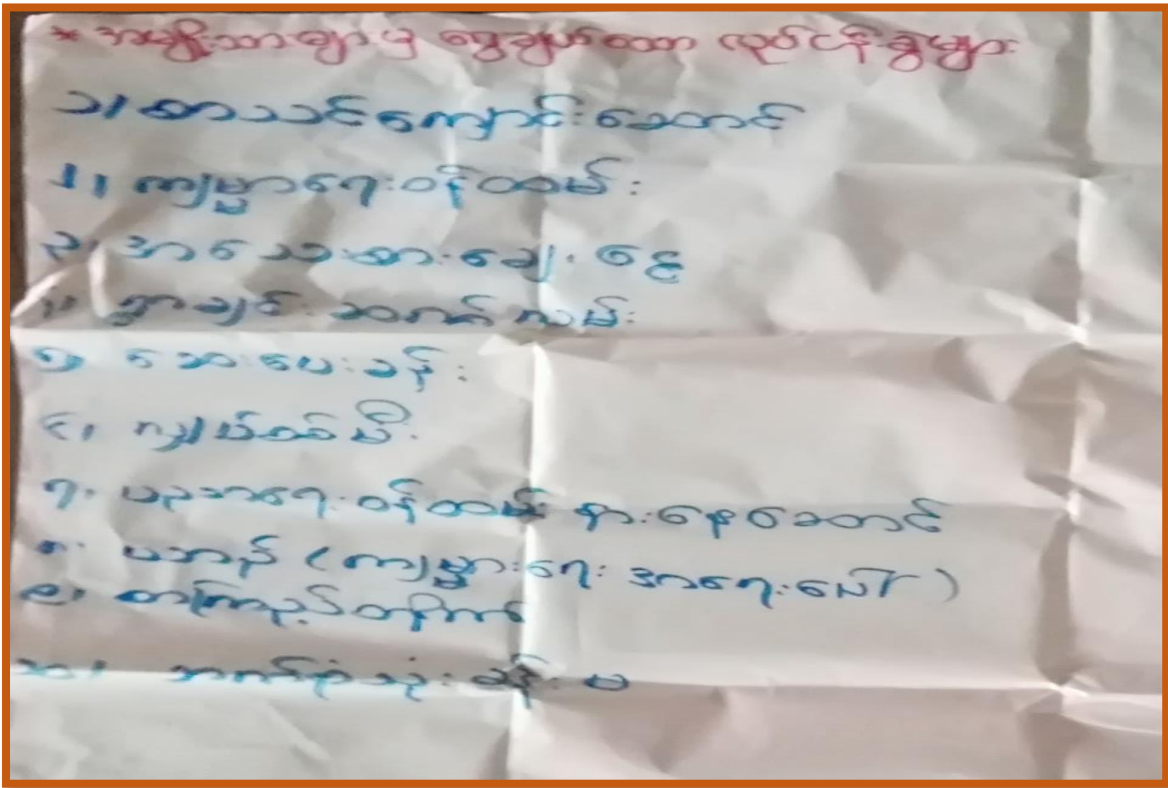 * အမျိုးသားများမှ ရွေးချယ်သော လုပ်ငန်းခွဲများ
၁၊ စာသင်ကျောင်းဆောင်
၂၊ ကျမ္မာရေးဝန်ထမ်း
၃၊ အသေးစားချေးငွေ
၄၊ ရွာချင်းဆက်လမ်း
၅၊ ဆေးပေးခန်း
၆၊ လျှပ်စစ်မီး
၇၊ ပညာရေးဝန်ထမ်း နားနေဆောင်
၈၊ ပဘာန် (ကျမ္မားရေး အရေးပေါ်)
၉၊ စာကြည့်တိုက်
၁၀၊ ဘက်စုံသုံးခန်းမ